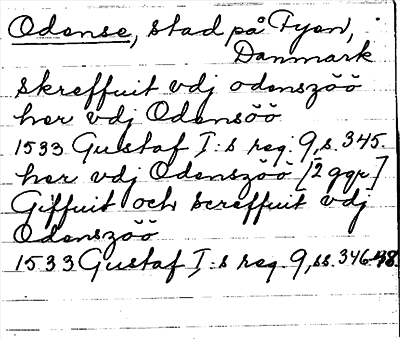 Odense, stad på Fyen,
Danmark
skreffuit vdj odenszöö
her vdj Odensöö
1533 Gustaf I:s reg. 9, s. 345.
her vdj Odenszöö [2 ggr]
Giffuit och screffuit vdj
Odenszöö
1533 Gustaf I:s reg. 9, ss. 346-48.